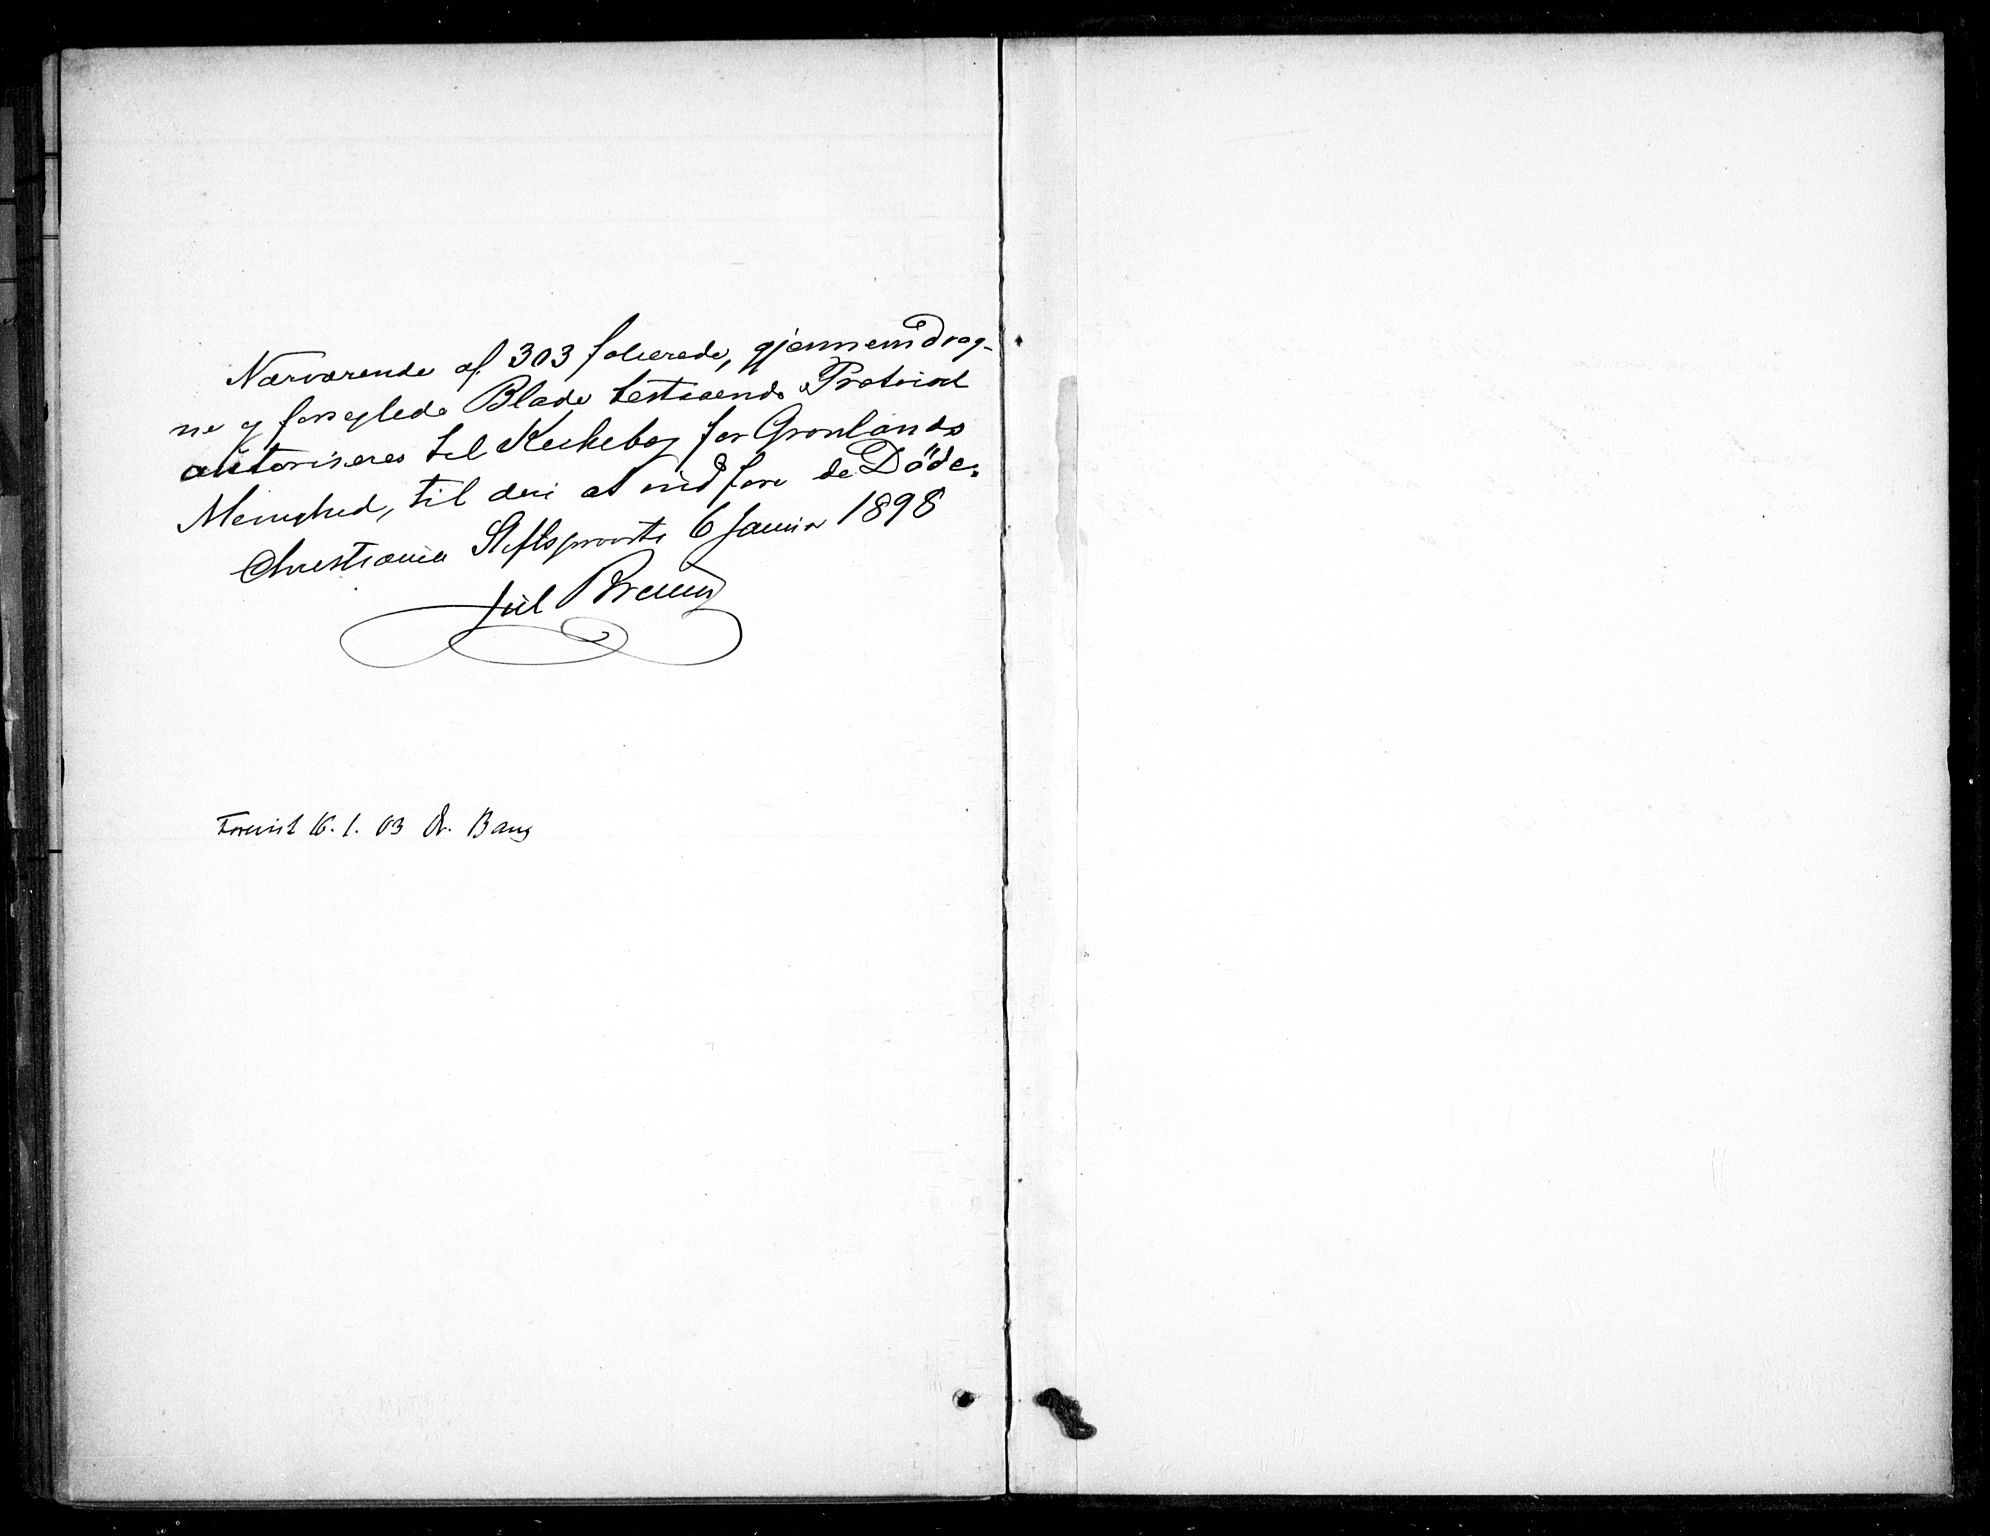 Nærværende af 303 folierede, gjennemdrag-
ne og forseglede Blade bestaaende Protocol
autoriseres til Kirkebog for Grønlands
Menighed, til deri at indføre de Döde.
Christiania Stiftsprovsti 6 Januar 1898
Jul Bruun
Forevist 16. 1. 03 Dr. Bang